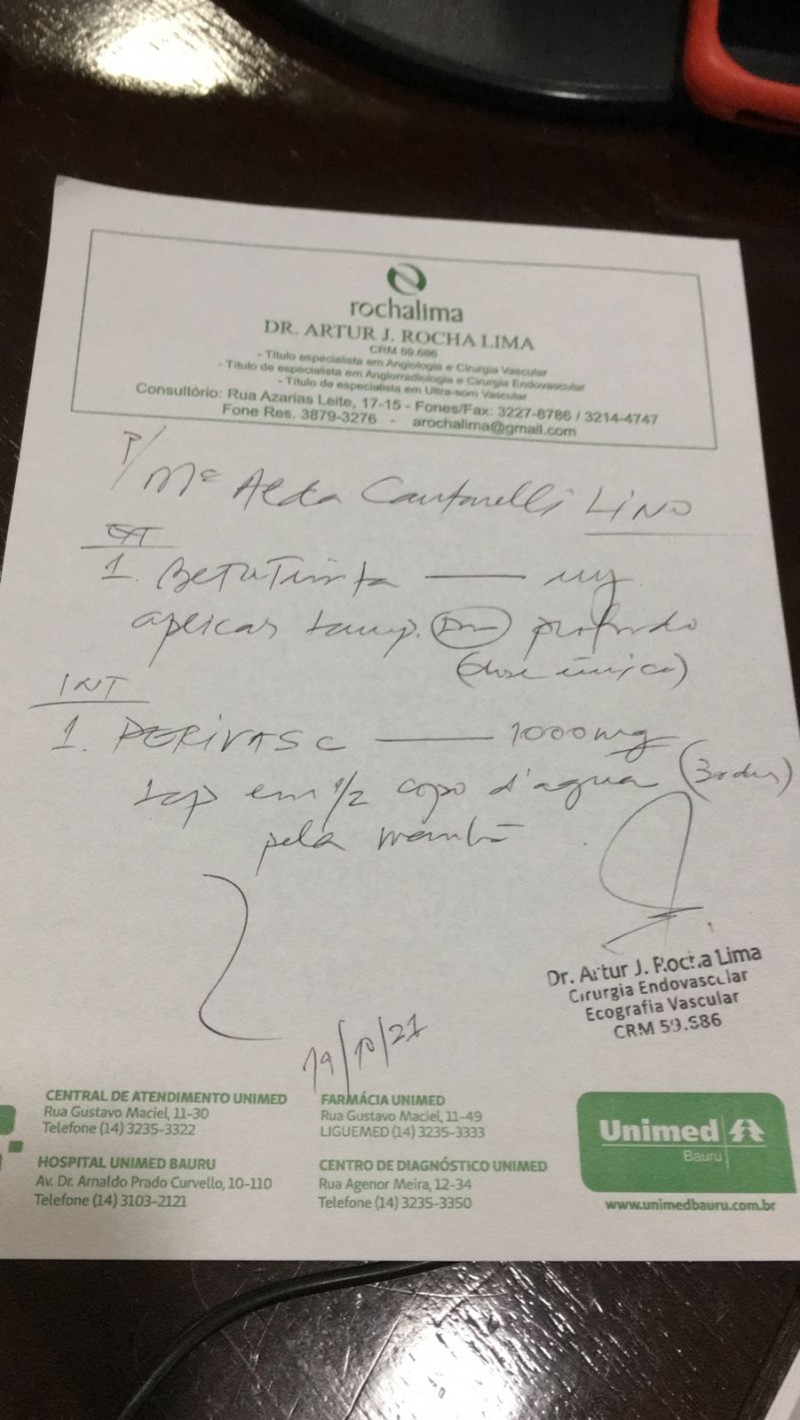 rochalima
DR. ARTUR J. ROCHA LIMA
CRM 59.686
- Título especialista em Angiologia e Cirurgia Vascular
- Título de especialista em Angiorradiologia e Cirurgia Endovascular
- Título de especialista em Ultra-som Vascular
Consultório: Rua Azarias Leite, 17-15 - Fones/Fax: 3227-8786 / 3214-4747
Fone Res. 3879-3276 - arochalima@gmail.com
P/ Mª Alda Cantarelli LINO
1.
aplicar profundo
(dose única)
INT
1. PERIVASC — 1000mg
em 1/2 copo d'agua
pela manhã
Dr. Artur J. Rocha Lima
Cirurgia Endovascular
Ecografia Vascular
CRM 59.686
19/10/21
CENTRAL DE ATENDIMENTO UNIMED
Rua Gustavo Maciel, 11-30
Telefone (14) 3235-3322
FARMÁCIA UNIMED
Rua Gustavo Maciel, 11-49
LIGUEMED (14) 3235-3333
HOSPITAL UNIMED BAURU
Av. Dr. Arnaldo Prado Curvello, 10-110
Telefone (14) 3103-2121
CENTRO DE DIAGNÓSTICO UNIMED
Rua Agenor Meira, 12-34
Telefone (14) 3235-3350
Unimed
Bauru
www.unimedbauru.com.br